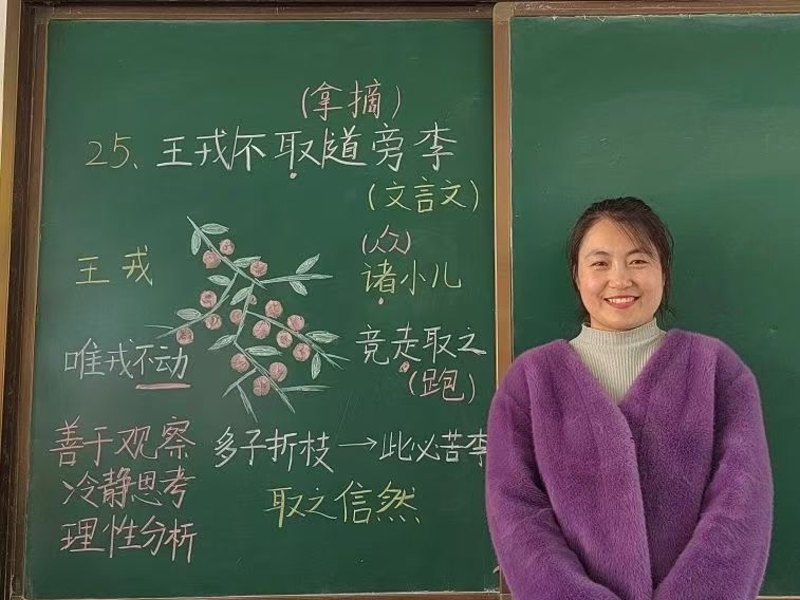 (拿摘)
25、王戎不取道旁李
(文言文)
王戎
(众)
诸小儿
唯戎不动
竞走取之
(跑)
善于观察
冷静思考
理性分析
多子折枝→此必苦李
取之信然